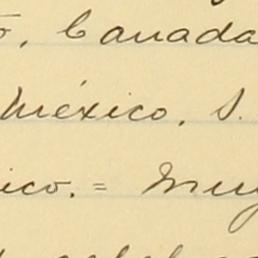 o, Canada
México, S.
ico. = Muy